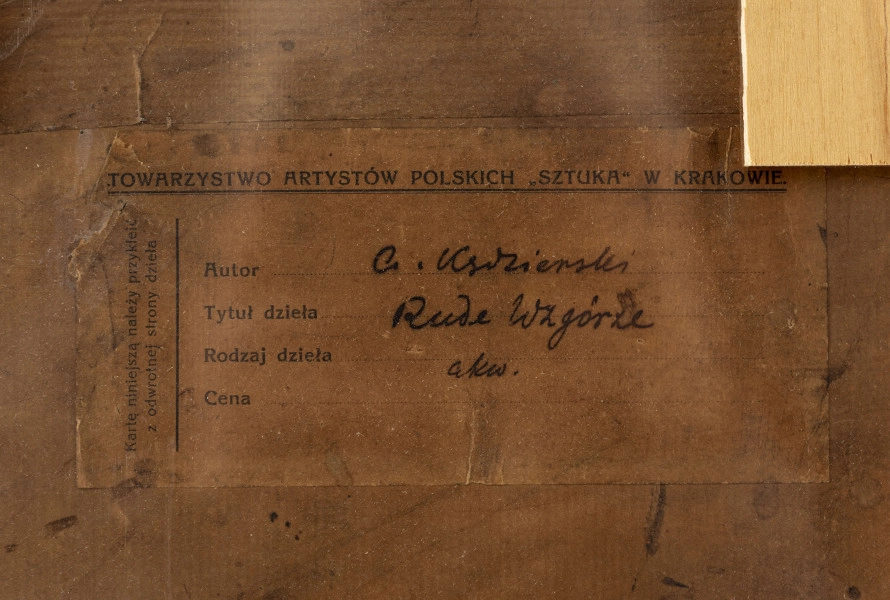 TOWARZYSTWO ARTYSTÓW POLSKICH „SZTUKA“ W KRAKOWIE.
Kartę niniejszą należy przykleić
z odwrotnej strony dzieła
Autor Kędzierski
Tytuł dzieła Rude Wzgórze
Rodzaj dzieła akw.
Cena